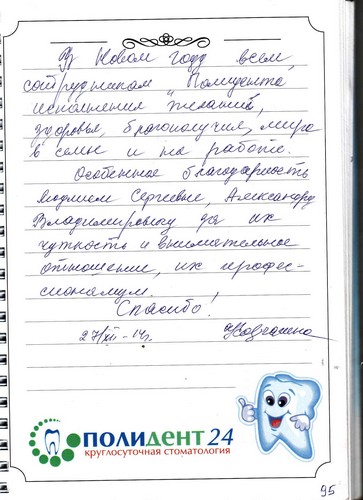 В Новом году всем
сотрудникам "Полидента"
исполнения желаний,
здоровья, благополучия, мира
в семье и на работе.
Особенная благодарность
Людмиле Сергеевне, Александру
Владимировичу за их
чуткость и внимательное
отношение, их профес-
сионализм.
Спасибо!
27/XII-14г.
ПОЛИДЕНТ 24
круглосуточная стоматология
95